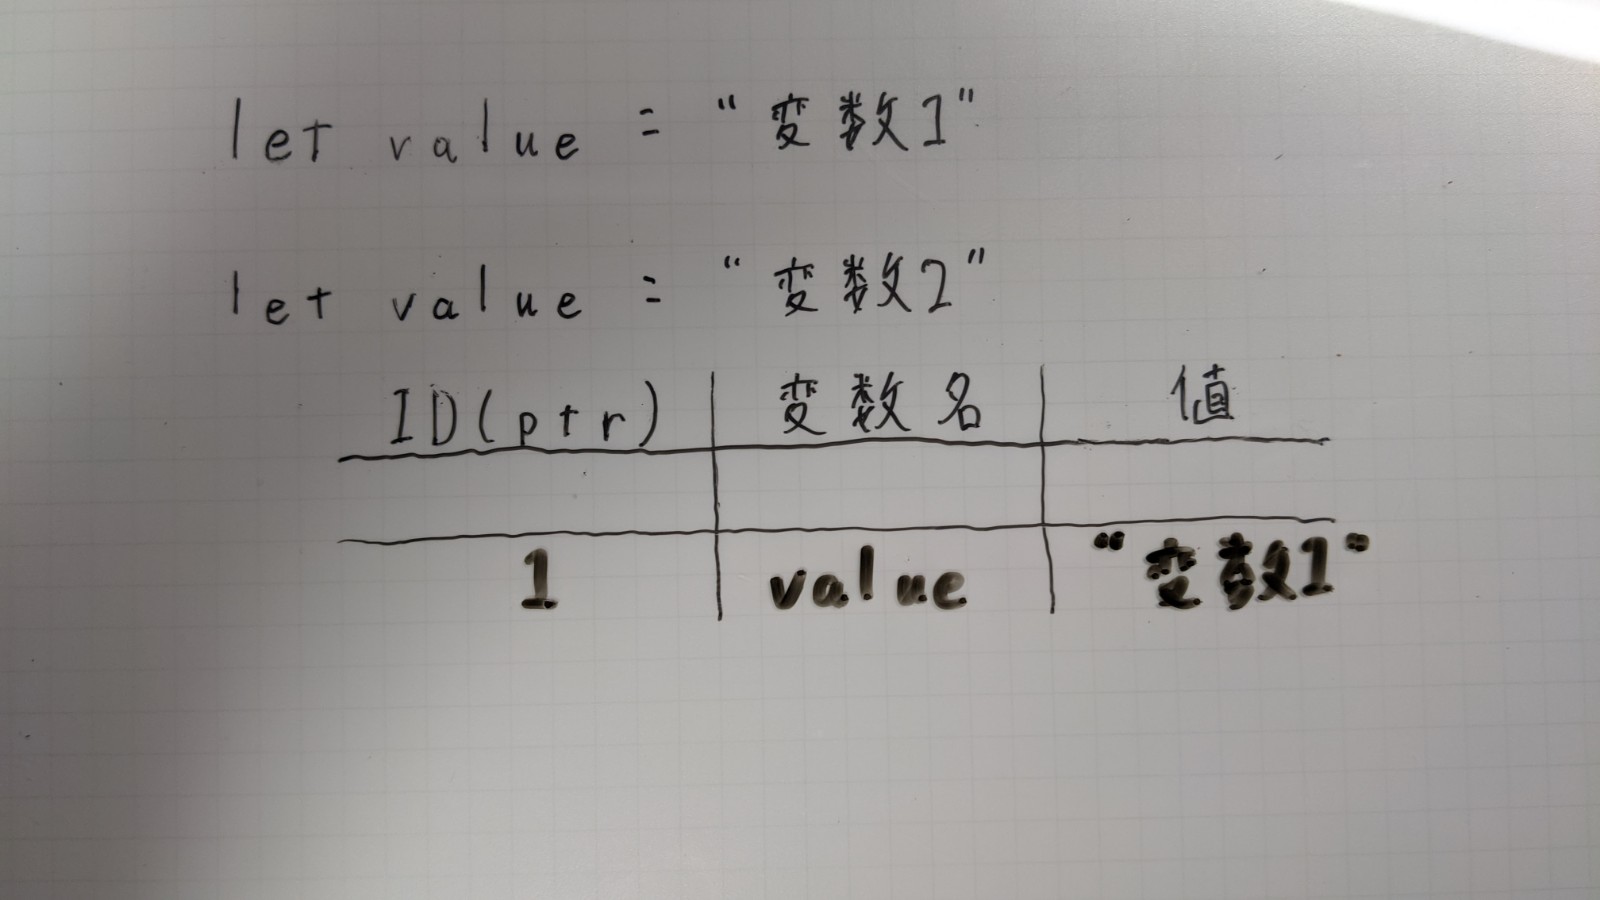 let value = "変数1"
let value = "変数2"
ID(ptr) 変数名 値
1 value "変数1"